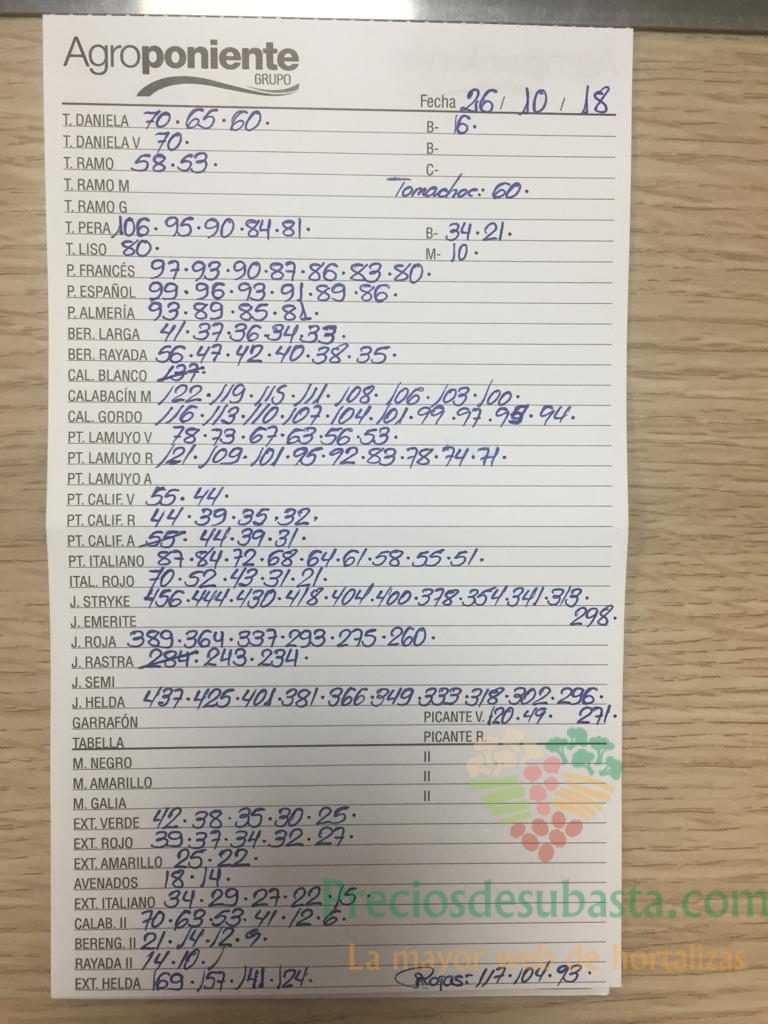 Agroponiente
GRUPO
Fecha 26 / 10 / 18
T. DANIELA 70·65·60· B- 16·
T. DANIELA V 70· B-
T. RAMO 58·53· C-
T. RAMO M Tomachoc: 60·
T. RAMO G
T. PERA 106·95·90·84·81· B- 34·21·
T. LISO 80· M- 10·
P. FRANCÉS 97·93·90·87·86·83·80·
P. ESPAÑOL 99·96·93·91·89·86·
P. ALMERÍA 93·89·85·81·
BER. LARGA 41·37·36·34·33·
BER. RAYADA 56·47·42·40·38·35·
CAL. BLANCO 137·
CALABACÍN M 122·119·115·111·108·106·103·100·
CAL. GORDO 116·113·110·107·104·101·99·97·95·94·
PT. LAMUYO V 78·73·67·63·56·53·
PT. LAMUYO R 121·109·101·95·92·83·78·74·71·
PT. LAMUYO A
PT. CALIF. V 55·44·
PT. CALIF. R 44·39·35·32·
PT. CALIF. A 55· 44·39·31·
PT. ITALIANO 87·84·72·68·64·61·58·55·51·
ITAL. ROJO 70·52·43·31·21·
J. STRYKE 456·444·430·418·404·400·378·354·341·313·
J. EMERITE 298·
J. ROJA 389·364·337·293·275·260·
J. RASTRA 284· 243·234·
J. SEMI
J. HELDA 437·425·401·381·366·349·333·318·302·296·
GARRAFÓN PICANTE V. 120·49· 271·
TABELLA PICANTE R.
M. NEGRO II
M. AMARILLO II
M. GALIA II
EXT. VERDE 42·38·35·30·25·
EXT. ROJO 39·37·34·32·27·
EXT. AMARILLO 25·22·
AVENADOS 18·14·
EXT. ITALIANO 34·29·27·22·15
Preciosdesubasta.com
CALAB. II 70·63·53·41·12·6·
BERENG. II 21·14·12·9·
La mayor web de hortalizas
RAYADA II 14·10·
EXT. HELDA 169·157·141·124· Rojas: 117·104·93·